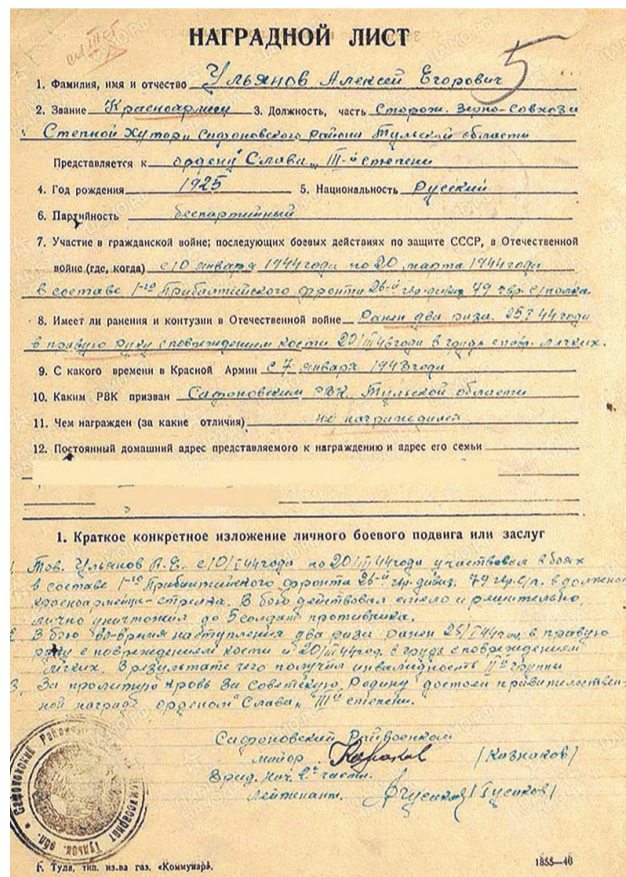 5
НАГРАДНОЙ ЛИСТ
1. Фамилия, имя и отчество Ульянов Алексей Егорович
2. Звание Красноармеец 3. Должность, часть Сторож. Зерно-Совхоза
"Степной Хутор" Сафоновского Района Тульской области
Представляется к ордену "Слава" III-й степени
4. Год рождения 1925 5. Национальность Русский
6. Партийность беспартийный
7. Участие в гражданской войне; последующих боевых действиях по защите СССР, в Отечественной
войне (где, когда) с 10 января 1944 года по 20 марта 1944 года
в составе 1-го Прибалтийского фронта 26-й гвр. дивиз. 79 гвр. с/полка
8. Имеет ли ранения и контузии в Отечественной войне Ранен два раза. 25 I 44 года
в правую руку с повреждением кости 20/III 44 года в грудь с повр. легких.
9. С какого времени в Красной Армии с 7 января 1943 года
10. Каким РВК призван Сафоновским РВК, Тульской области
11. Чем награжден (за какие отличия) не награждался
12. Постоянный домашний адрес представляемого к награждению и адрес его семьи
1. Краткое конкретное изложение личного боевого подвига или заслуг
1. Тов. Ульянов А.Е. с 10/I 44 года по 20/III 44 года участвовал в боях
в составе 1-го Прибалтийского фронта 26-й гвр. дивиз. 79 гвр. с/п. в должности
красноармейца-стрелка. В бою действовал смело и решительно,
лично уничтожил до 5 солдат противника.
2. В бою во-время наступления два раза ранен 25/I 44 года в правую
руку с повреждением кости и 20/III 44 год. в грудь с повреждением
легких. В результате чего получил инвалидность II-й группы
3. За пролитую кровь за Советскую Родину достоен правительствен-
ной наград. орденом "Слава" III-й степени.
Сафоновский Райвоенком
майор (Казнаков)
Вр.ид. Нач. 2-й части.
лейтенант. (Гусиков)
г. Тула, тип. из-ва газ. «Коммунар».
1855—46